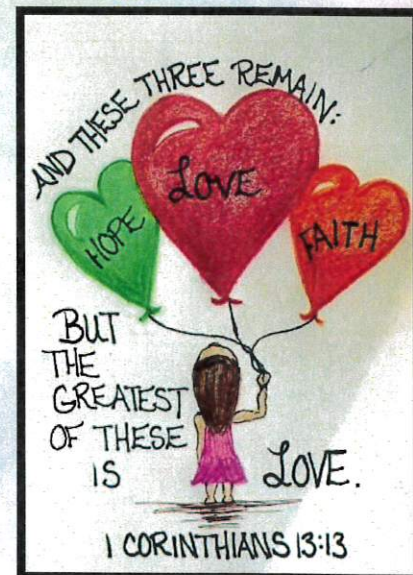 AND THESE THREE REMAIN:
HOPE
LOVE
FAITH
BUT
THE
GREATEST
OF THESE
IS LOVE.
1 CORINTHIANS 13:13